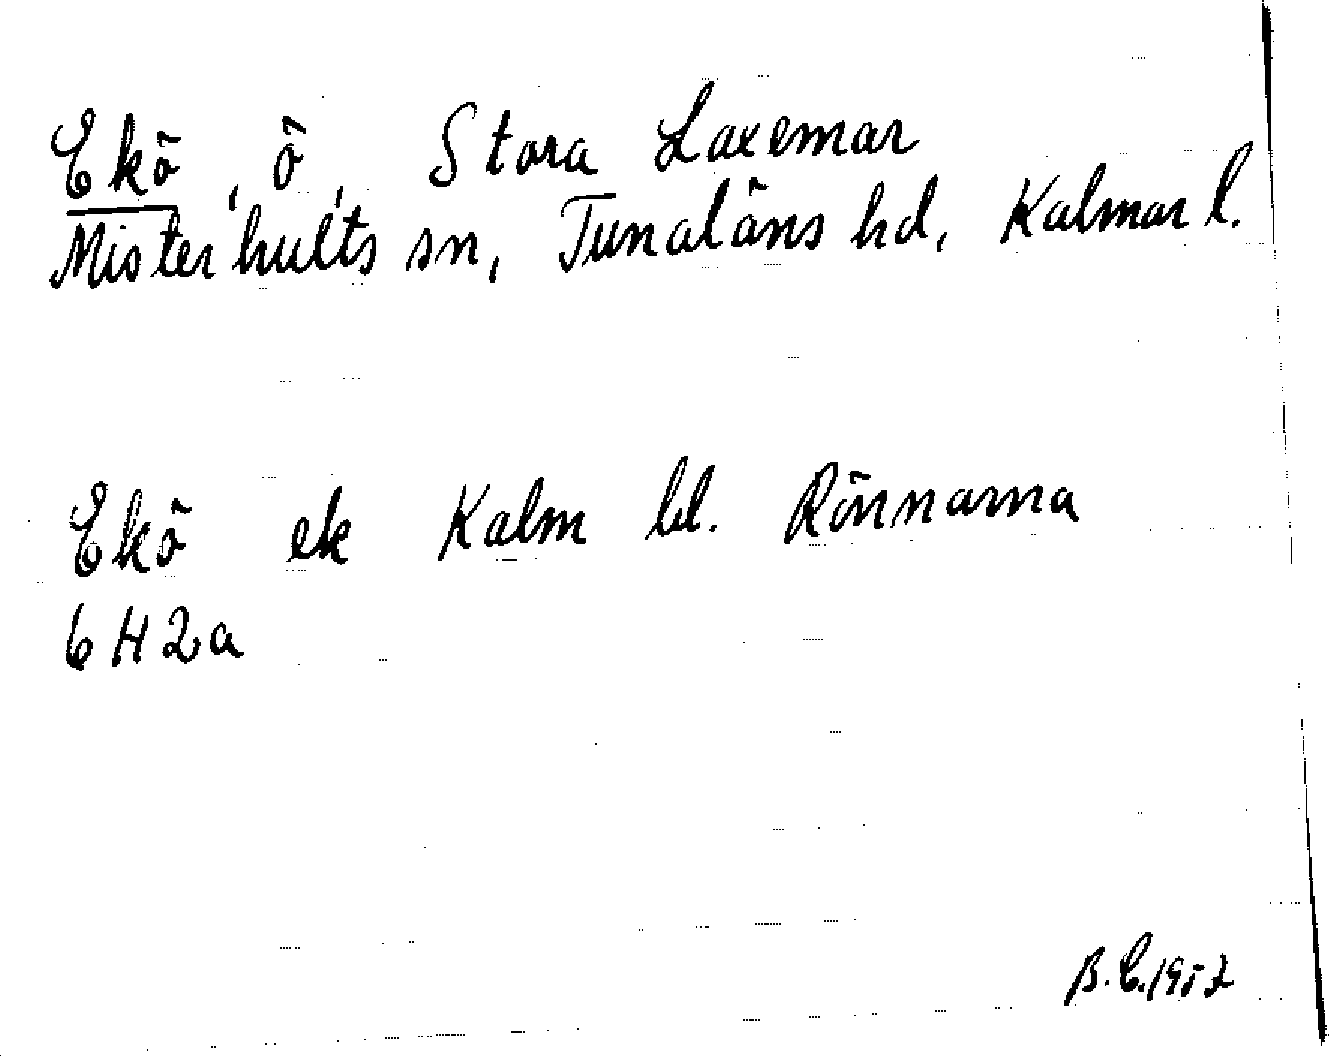 Ekö, ö, Stora Laxemar
Misterhults sn, Tunaläns hd, Kalmar l.
Ekö ek Kalm bl. Rönnarna
6H2a
B.E.1952